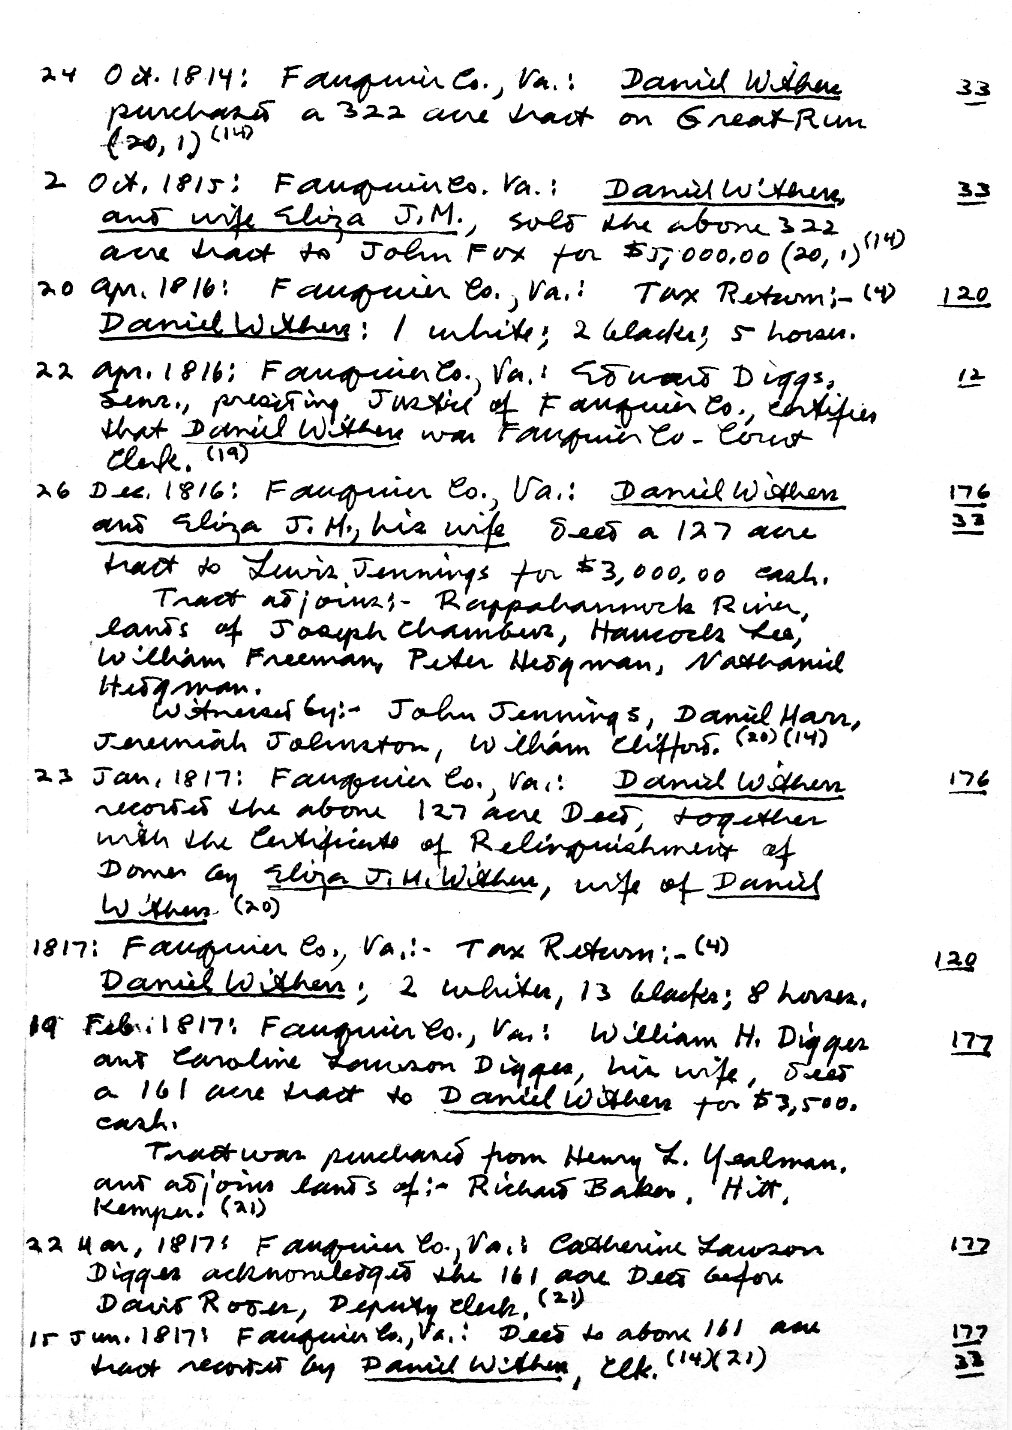 24 Oct. 1814: Fauquier Co., Va.: Daniel Withers 33
purchased a 322 acre tract on Great Run
(20, 1) (14)
2 Oct. 1815: Fauquier Co. Va.: Daniel Withers, 33
and wife Eliza J.M., sold the above 322
acre tract to John Fox for $5,000.00 (20, 1) (14)
20 Apr. 1816: Fauquier Co., Va.: Tax Return:- (4) 120
Daniel Withers: 1 white; 2 blacks; 5 horses.
22 Apr. 1816: Fauquier Co., Va.: Edward Diggs, 12
Senr., presiding Justice of Fauquier Co., certifies
that Daniel Withers was Fauquier Co. Court
Clerk. (19)
26 Dec. 1816: Fauquier Co., Va.: Daniel Withers 176
and Eliza J.M., his wife deed a 127 acre 33
tract to Lewis Jennings for $3,000.00 cash.
Tract adjoins:- Rappahannock River,
lands of Joseph Chambers, Hancock Lee,
William Freeman, Peter Hedgman, Nathaniel
Hedgman.
Witnessed by:- John Jennings, Daniel Harr,
Jeremiah Johnston, William Clifford. (20) (14)
23 Jan. 1817: Fauquier Co., Va.: Daniel Withers 176
recorded the above 127 acre Deed, together
with the Certificate of Relinquishment of
Dower by Eliza J.M. Withers, wife of Daniel
Withers. (20)
1817: Fauquier Co., Va.:- Tax Return:- (4) 120
Daniel Withers; 2 whites, 13 blacks; 8 horses.
19 Feb. 1817: Fauquier Co., Va.: William H. Digges 177
and Caroline Lawson Digges, his wife, deed
a 161 acre tract to Daniel Withers for $3,500.
cash.
Tract was purchased from Henry L. Yealman,
and adjoins lands of:- Richard Baker, Hitt,
Kemper. (21)
22 Mar. 1817: Fauquier Co., Va.: Catherine Lawson 177
Digges acknowledged the 161 acre Deed before
David Roser, Deputy Clerk. (21)
15 Jun. 1817: Fauquier Co., Va.: Deed to above 161 acre 177
tract recorded by Daniel Withers, Clk. (14)(21) 33